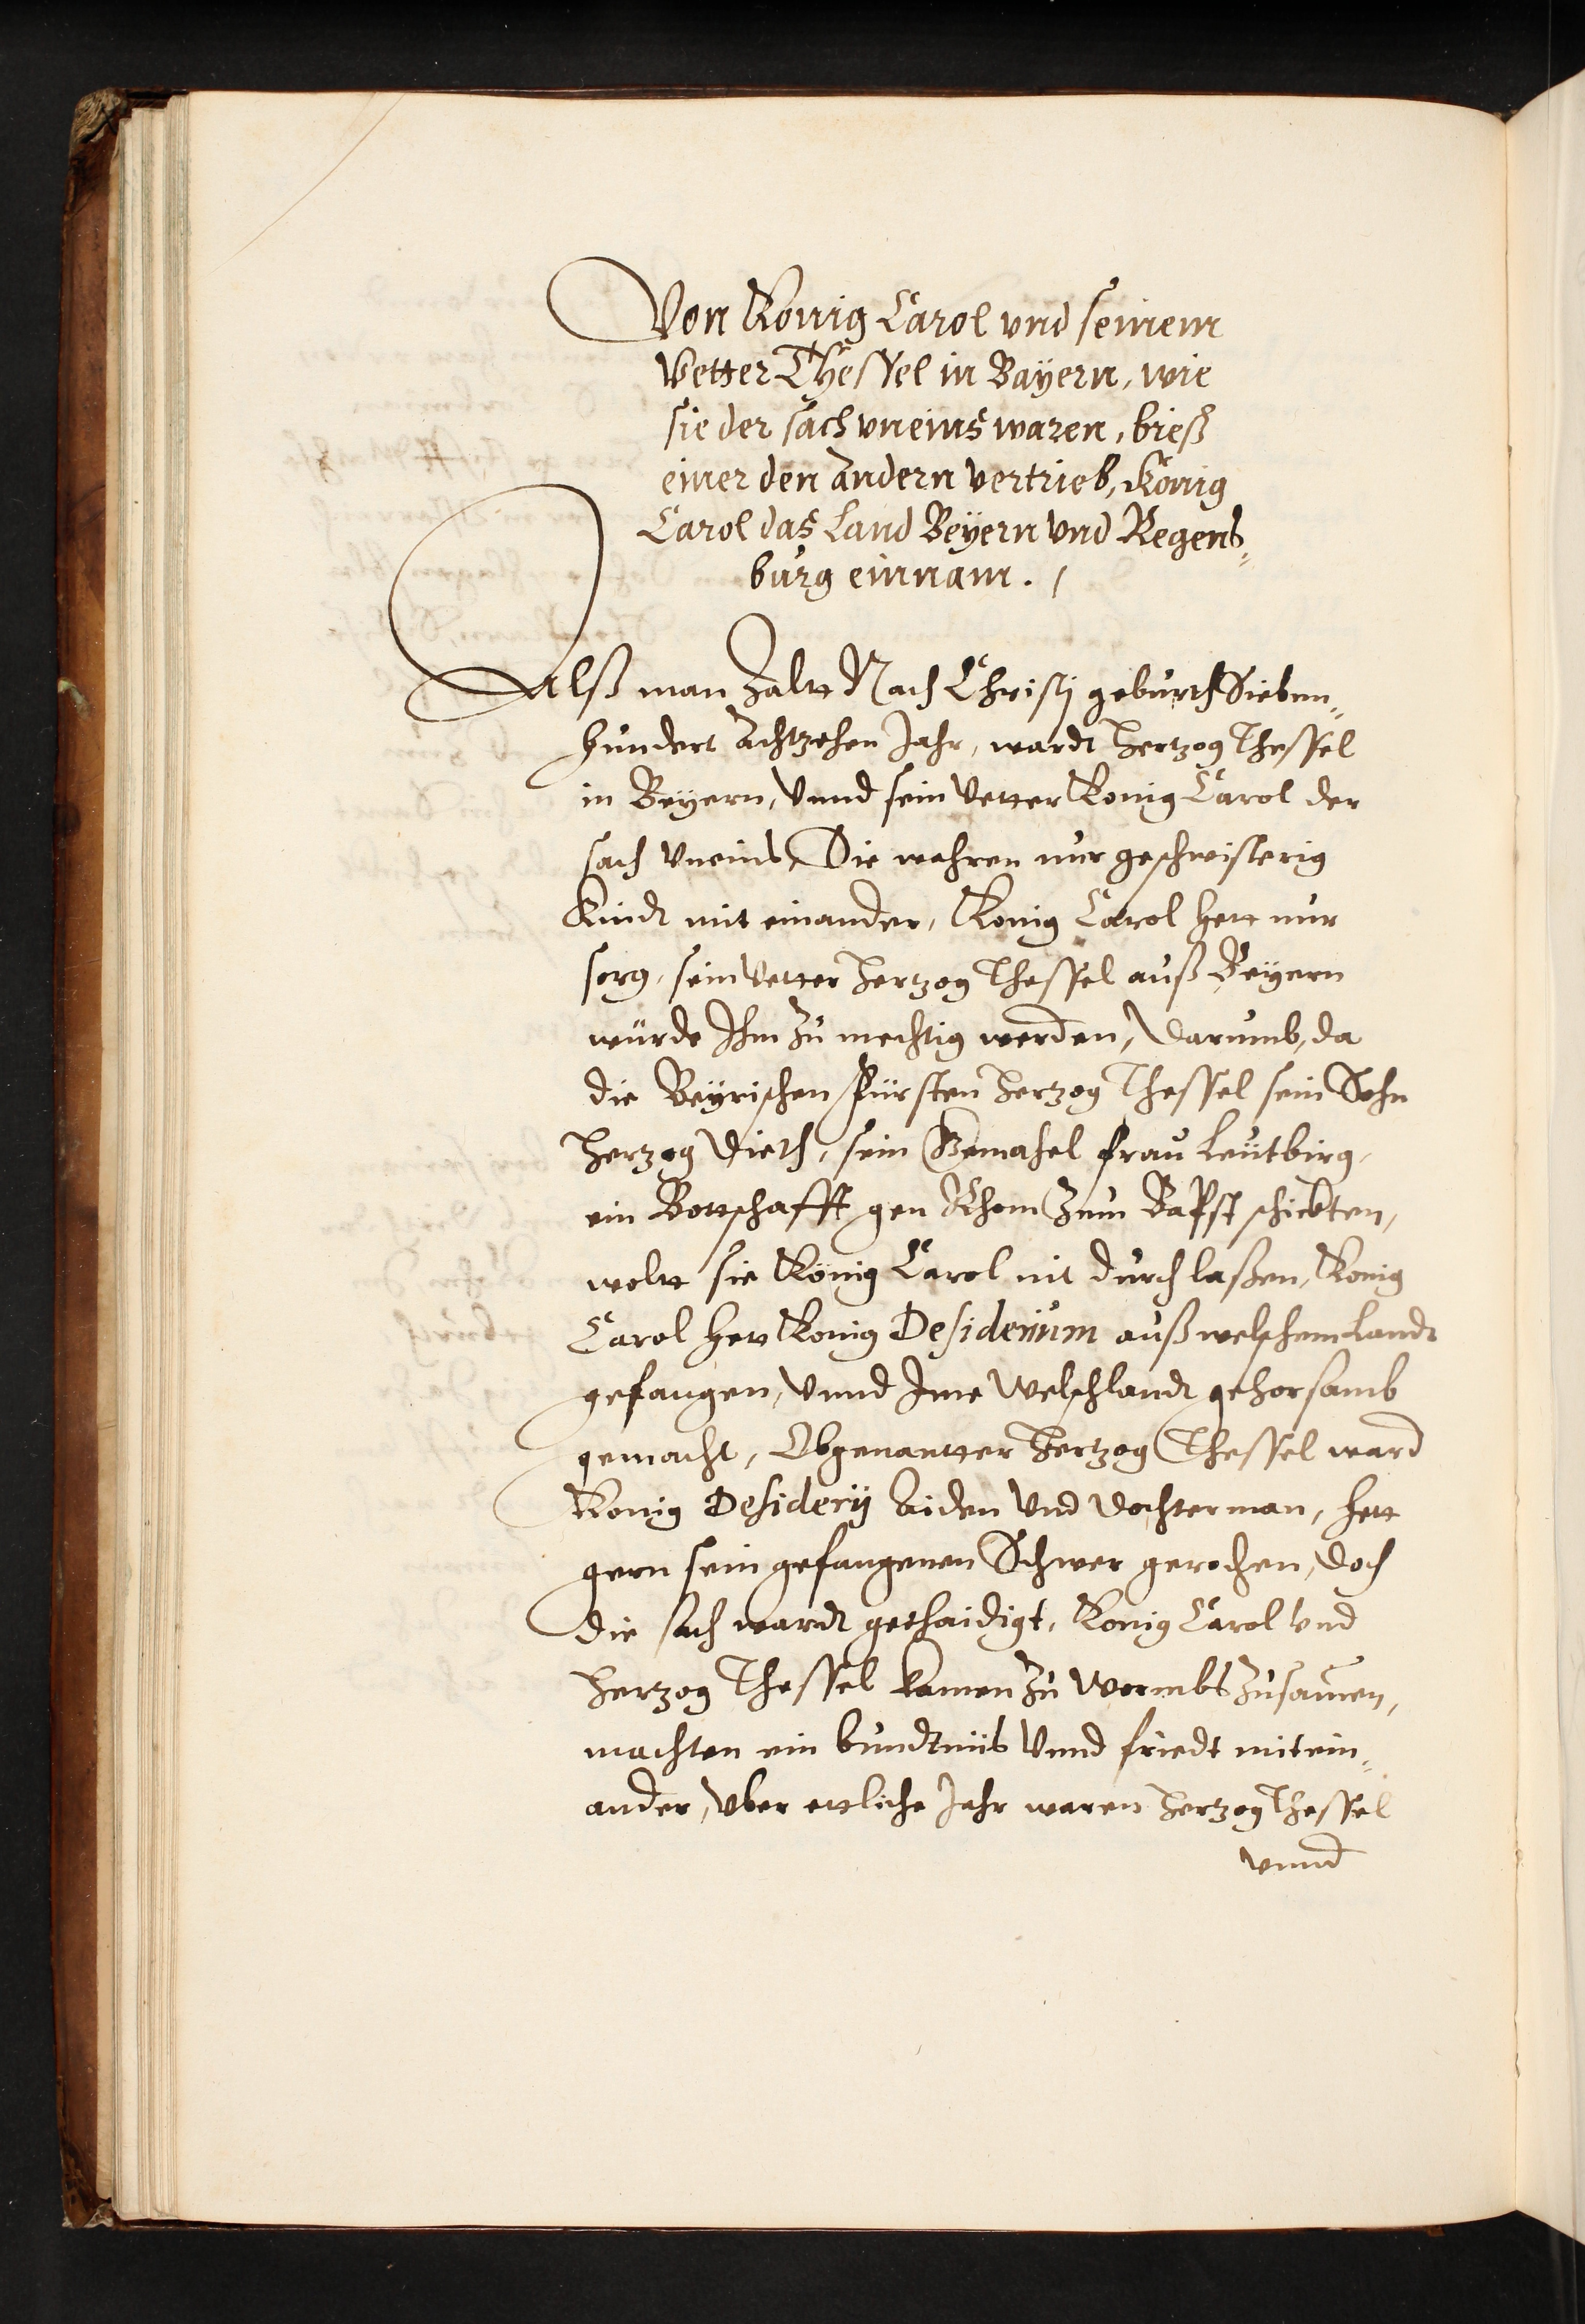 Von König Carol vnd seinem
Vetter Thessel in Bayern, wie
sie der sach vneins waren, bieß
einer den andern vertrieb, König
Carol das Land Beyern vnd Regens„
burg einnam. /
Alß man Zaltt Nach Christj geburth Sieben„
hundert Achtzehen Jahr, wardt Hertzog Thessel
in Beyern, Vnnd sein Vetter König Carol der
sach vneins, Die wahren nur geschwisterig
Kindt mit einander, König Carol hett nur
sorg, sein Vetter Hertzog Thessel auß Beyern
würde Ihm Zu mechtig werden, Darumb, da
die Beyrischen Fürsten Hertzog Thessel sein Sohn
Hertzog Dieth, sein Gemahel frau Leütbirg,
ein Bottschafft gen Rhom Zum Bapst schickten,
woltt sie König Carol nit durch laßen, König
Carol hett König Desiderium auß welschem Landt
gefangen, Vnnd Ime Welschlandt gehorsamb
gemacht, Obgenantter Hertzog Thessel ward
König Desiderij Aiden Vnd Dochterman, hett
gern sein gefangenen Schwer gerochen, Doch
die sach wardt gethaidigt, König Carol Vnd
Hertzog Thessel kamen Zu Wormbs Zusamen,
machten ein bundtnüs Vnnd friedt mitein„
ander, Vber ettliche Jahr waren Hertzog Thessel
vnnd